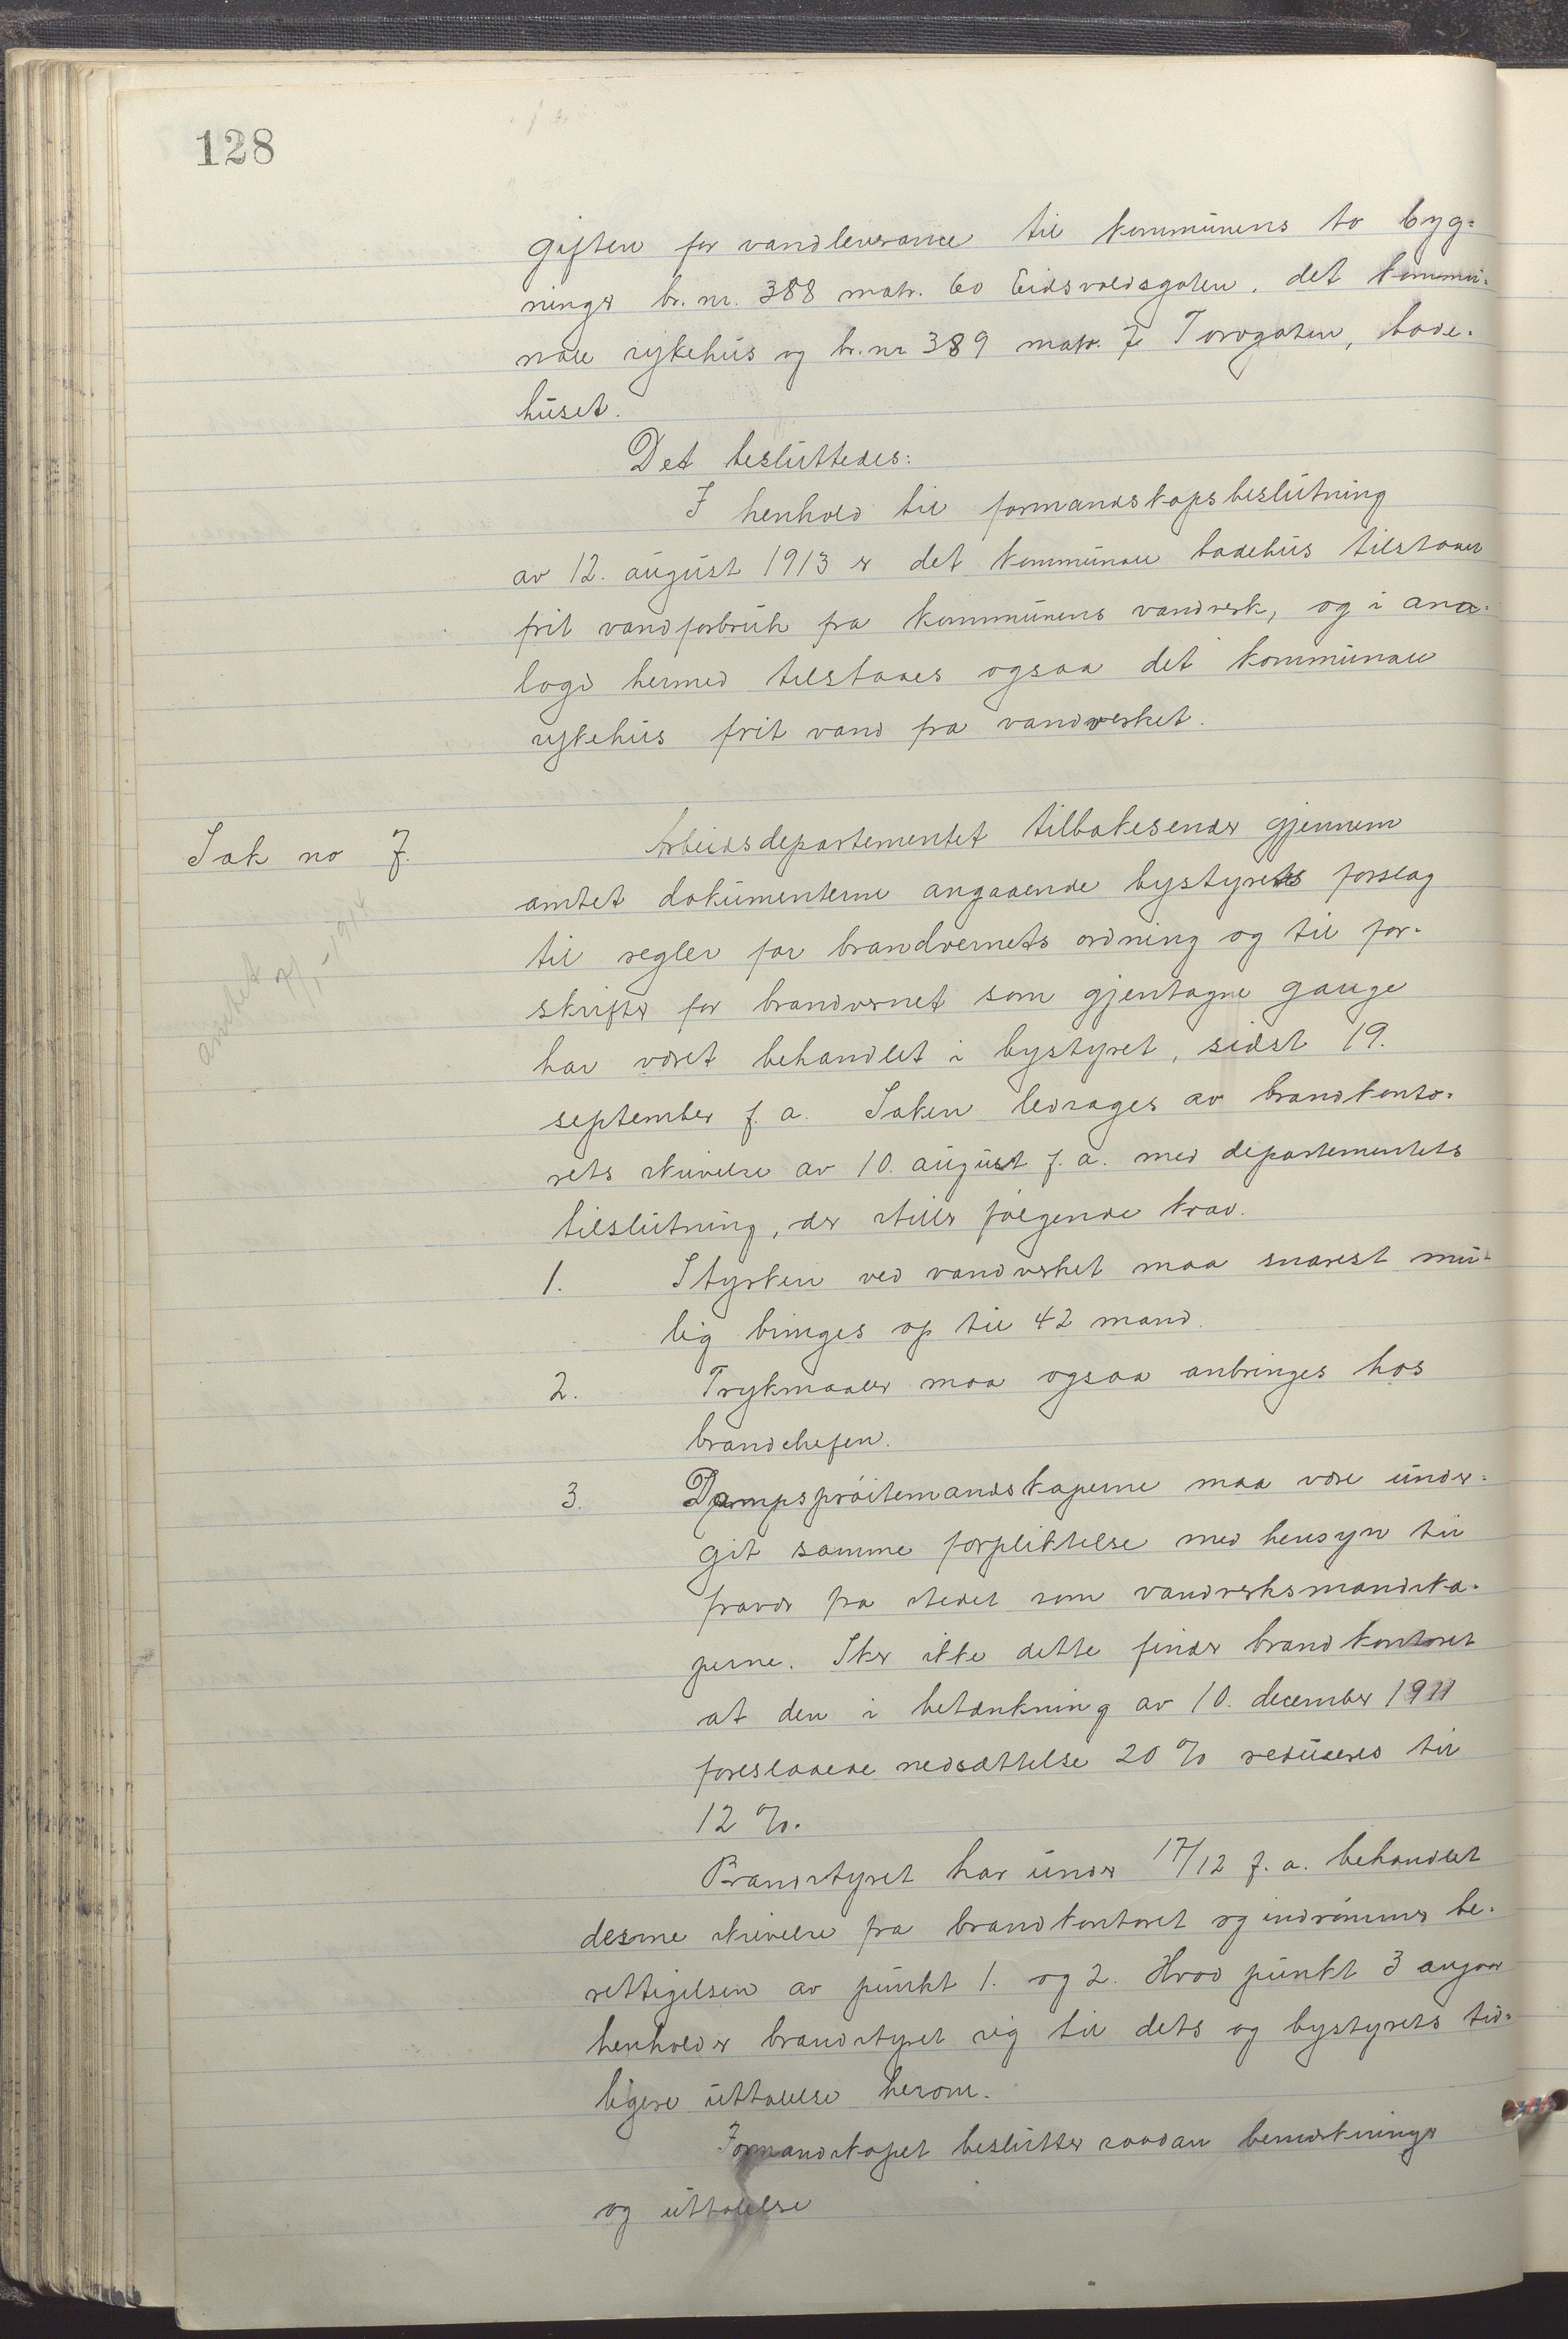 128
giften for vandleverance til kommunens to byg=
ninger br. nr. 388 matr. 60 Eidsvoldsgaten, det kommu-
nale sykehus og br. nr 389 matr. 7 Torvgaten, bade-
huset.
Det besluttedes:
I henhold til formandskapsbeslutning
av 12. august 1913 er det kommunale badehus tilstaaet
frit vandforbruk fra kommunens vandverk, og i ana-
logi hermed tilstaaes ogsaa det kommunale
sykehus frit vand fra vandverket.
Sak no 7.
Arbeidsdepartementet tilbakesender gjennem
amtet dokumenterne angaaende bystyrets forslag
til regler for brandvernets ordning og til for-
skrifter for brandvernet som gjentagne gange
har været behandlet i bystyret, sidst 19.
september f. a. Saken ledsages av brandkonto-
rets skrivelse av 10. august f. a. med departementets
tilslutning, der stiller følgende krav.
1. Styrken ved vandverket maa snarest mu-
lig bringes op til 42 mand.
2. Trykmaaler maa ogsaa anbringes hos
brandchefen.
3. Dampsprøitemandskaperne maa være under-
git samme forpliktelse med hensyn til
fravær fra stedet som vandverksmandska-
perne. Sker ikke dette finder brandkontoret
at den i betænkning av 10. december 1911
foreslaaede nedsættelse 20 % reduceres til
12 %.
Brandstyret har under 17/12 f. a. behandlet
desme skrivelse fra brandkontoret og indrømmer be-
rettigelsen av punkt 1. og 2. Hvad punkt 3 angaar
henholder brandstyret sig til dets og bystyrets tid=
ligere uttalelse herom.
Formandskapet beslutter saadan bemerkninger
og uttalelse